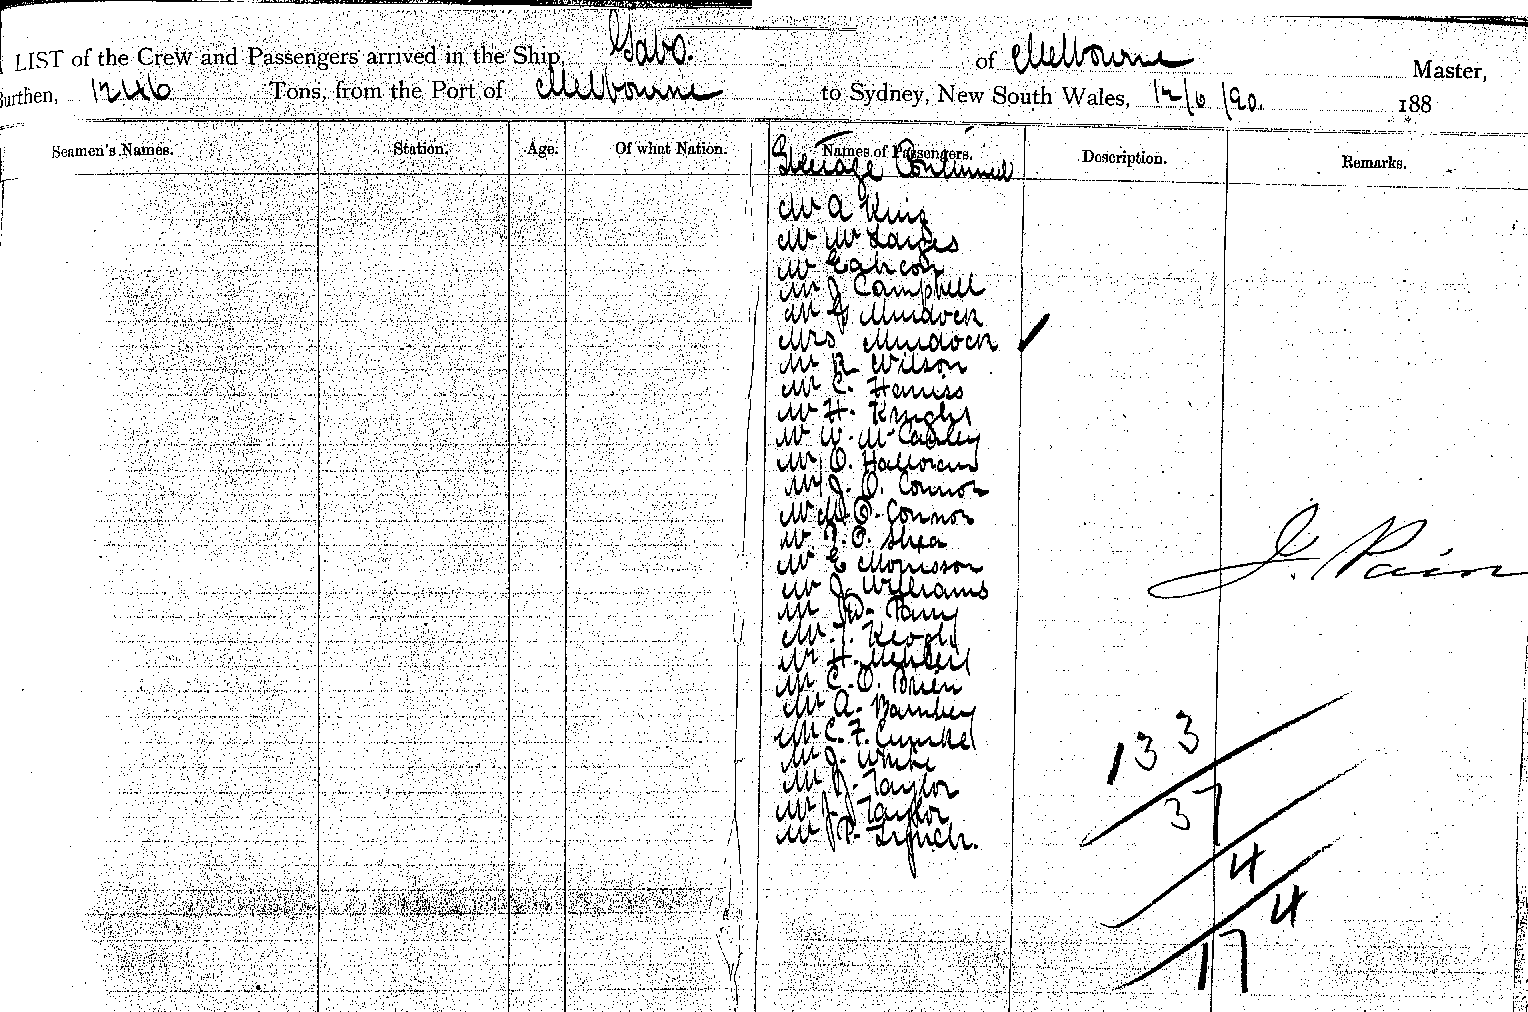 LIST of the Crew and Passengers arrived in the Ship, Gabo. of Melbourne Master,
Burthen, 1246 Tons, from the Port of Melbourne to Sydney, New South Wales, 12/6/90. 188
Seamen's Names. Station. Age. Of what Nation. Names of Passengers. Description. Remarks.
Steerage Continued
Mr A King
Mr W
Mr
Mr J Campbell
Mr J Murdock
Mrs Murdock
Mr R Wilson
Mr C. Harriss
Mr H. Knight
Mr W. McCauley
Mr O. Halloran
Mr J. O. Connor
Mr M. O. Connor
Mr T. O. Shea
Mr E Morrisson
Mr J. Williams
Mr D. Parry
Mr J. Keogh
Mr H.
Mr C. O. Brien
Mr A. Barnbey
Mr C. F.
Mr J. White
Mr J. Taylor
Mr J. Taylor
Mr P. Lynch.
J. Pain
133
37
4
4
17